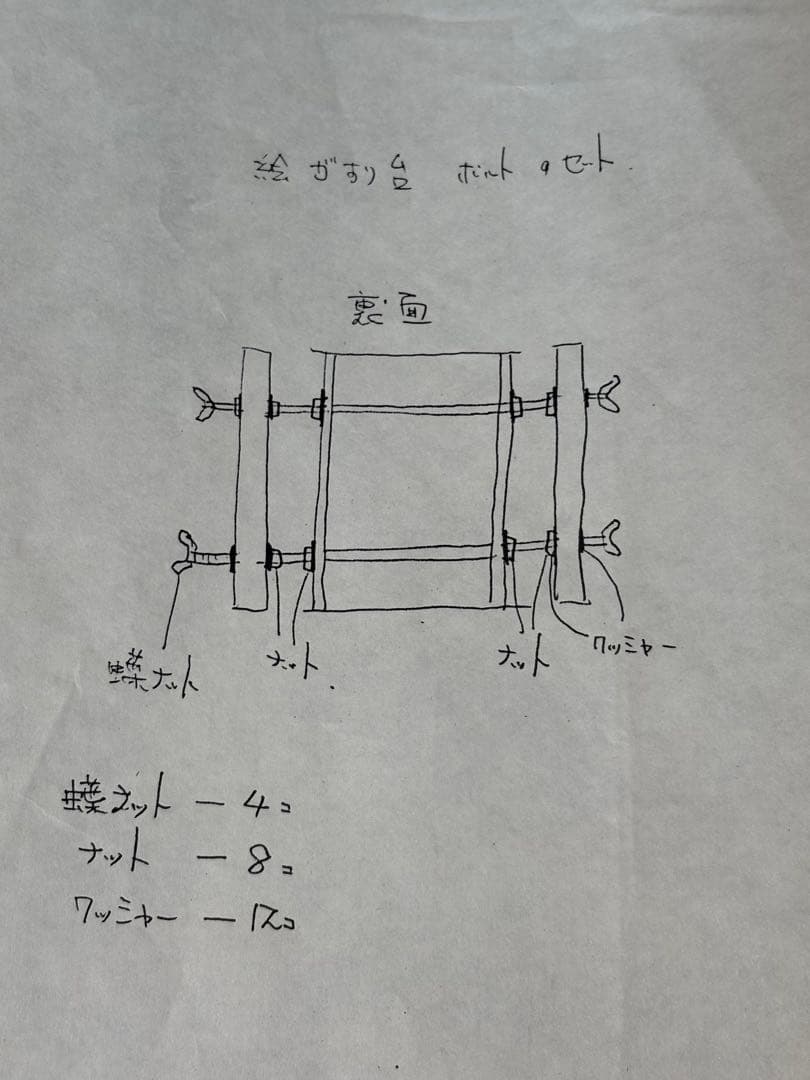 絵がすり台 ボルトのセット.
裏面
蝶ナット
ナット.
ナット
ワッシャー
蝶ネット ー 4コ
ナット ー 8コ
ワッシャー ー 12コ